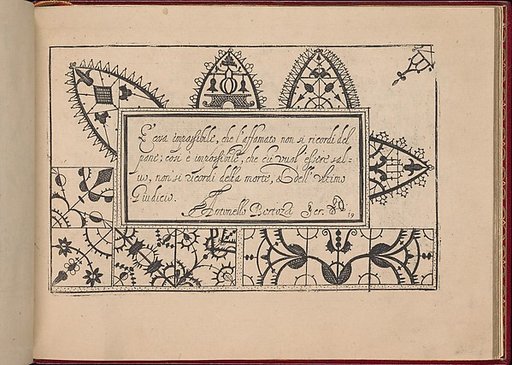 cosa impossibile, che l'affamato non si ricordi del
pane; così è impossibile, che chi vuol essere sal=
vo, non si ricordi della morte, & dell' ultimo
Giudicio.
Antonello Bertozzi Ser.
19